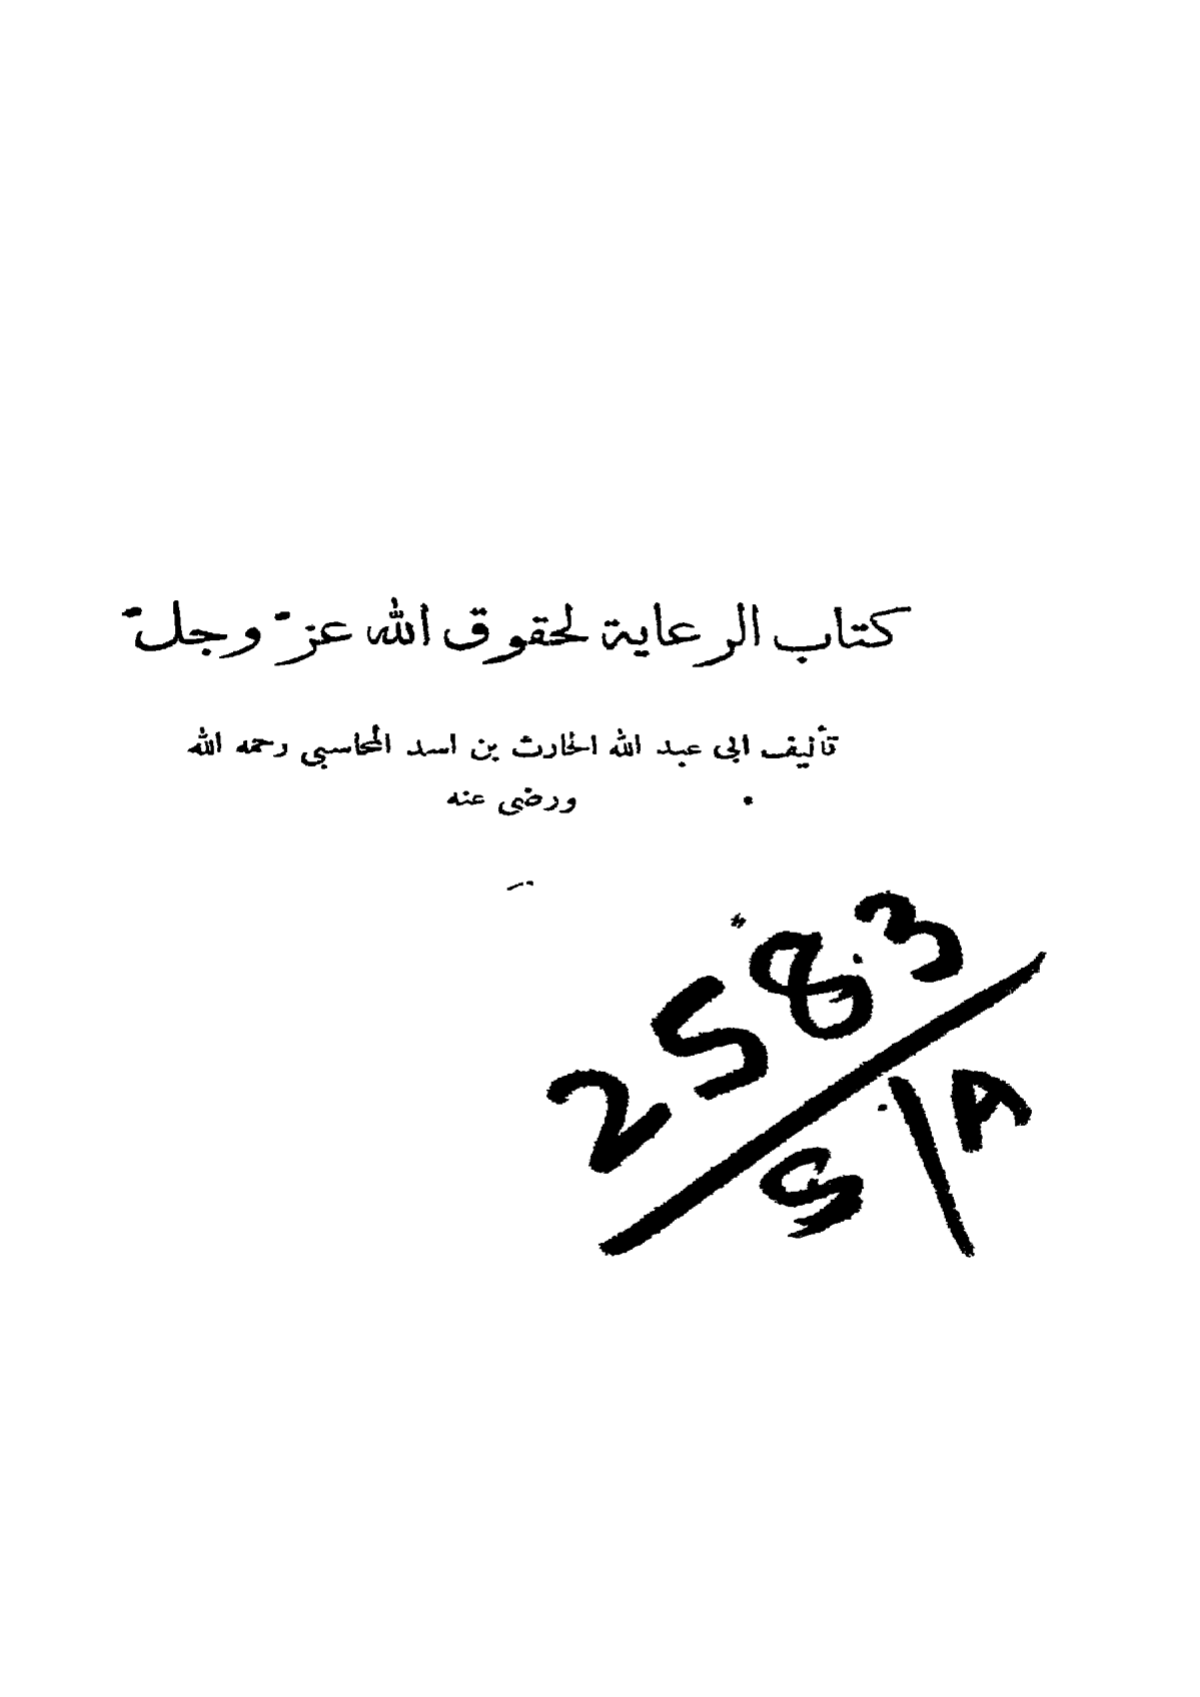 كتاب الرعاية لحقوق الله عزّ وجلّ
تأليف ابى عبد الله الحارث بن اسد المحاسبي رحمه الله
ورضى عنه
2583
S/A